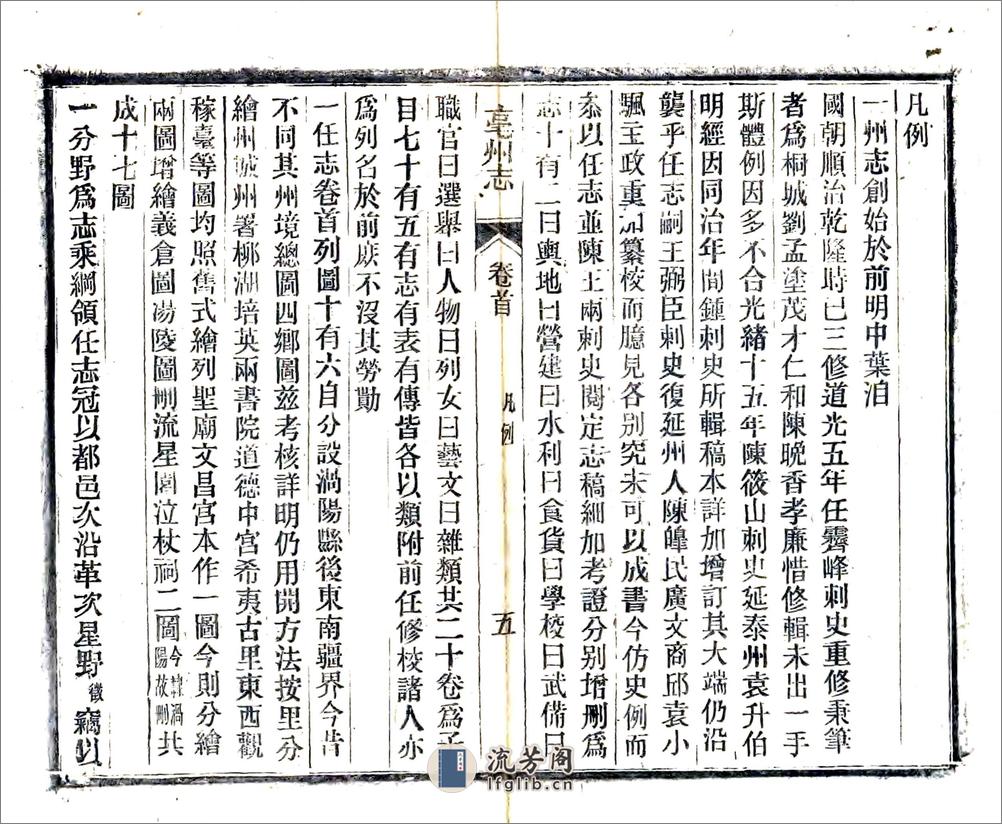 凡例
一州志創始於前明中葉洎
國朝順治乾隆時已三修道光五年任霽峰刺史重修秉筆
者爲桐城劉孟塗茂才仁和陳晚香孝廉惜修輯未出一手
斯體例因多不合光緒十五年陳筱山刺史延泰州袁升伯
明經因同治年間鍾刺史所輯稿本詳加增訂其大端仍沿
龔乎任志嗣王弼臣刺史復延州人陳皥民廣文商邱袁小
颿主政重加纂校而臆見各別究未可以成書今仿史例而
叅以任志並陳王兩刺史閱定志稿細加考證分別增刪爲
志十有二曰輿地曰營建曰水利曰食貨曰學校曰武備曰
亳州志
卷首
凡例
五
職官曰選舉曰人物曰列女曰藝文曰雜類共二十卷爲子
目七十有五有志有表有傳皆各以類附前任修校諸人亦
爲列名於前庶不沒其勞勩
一任志卷首列圖十有六自分設渦陽縣後東南疆界今昔
不同其州境總圖四鄉圖兹考核詳明仍用開方法按里分
繪州城州署柳湖培英兩書院道德中宮希夷古里東西觀
稼臺等圖均照舊式繪列聖廟文昌宮本作一圖今則分繪
兩圖增繪義倉圖湯陵圖刪流星園泣杖祠二圖今隸渦陽故刪共
成十七圖
一分野爲志乘綱領任志冠以都邑次沿革次星野竊以
流芳阁
lfglib.cn